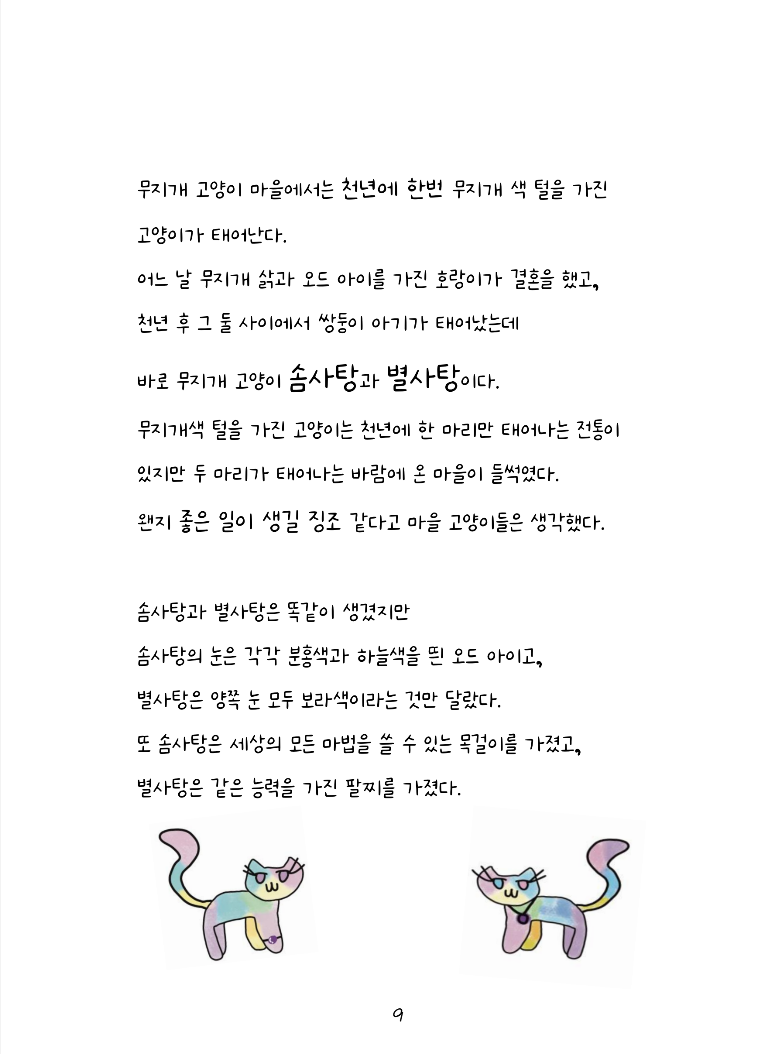 무지개 고양이 마을에서는 천년에 한번 무지개 색 털을 가진
고양이가 태어난다.
어느 날 무지개 삵과 오드 아이를 가진 호랑이가 결혼을 했고,
천년 후 그 둘 사이에서 쌍둥이 아기가 태어났는데
바로 무지개 고양이 솜사탕과 별사탕이다.
무지개색 털을 가진 고양이는 천년에 한 마리만 태어나는 전통이
있지만 두 마리가 태어나는 바람에 온 마을이 들썩였다.
왠지 좋은 일이 생길 징조 같다고 마을 고양이들은 생각했다.
솜사탕과 별사탕은 똑같이 생겼지만
솜사탕의 눈은 각각 분홍색과 하늘색을 띈 오드 아이고,
별사탕은 양쪽 눈 모두 보라색이라는 것만 달랐다.
또 솜사탕은 세상의 모든 마법을 쓸 수 있는 목걸이를 가졌고,
별사탕은 같은 능력을 가진 팔찌를 가졌다.
9